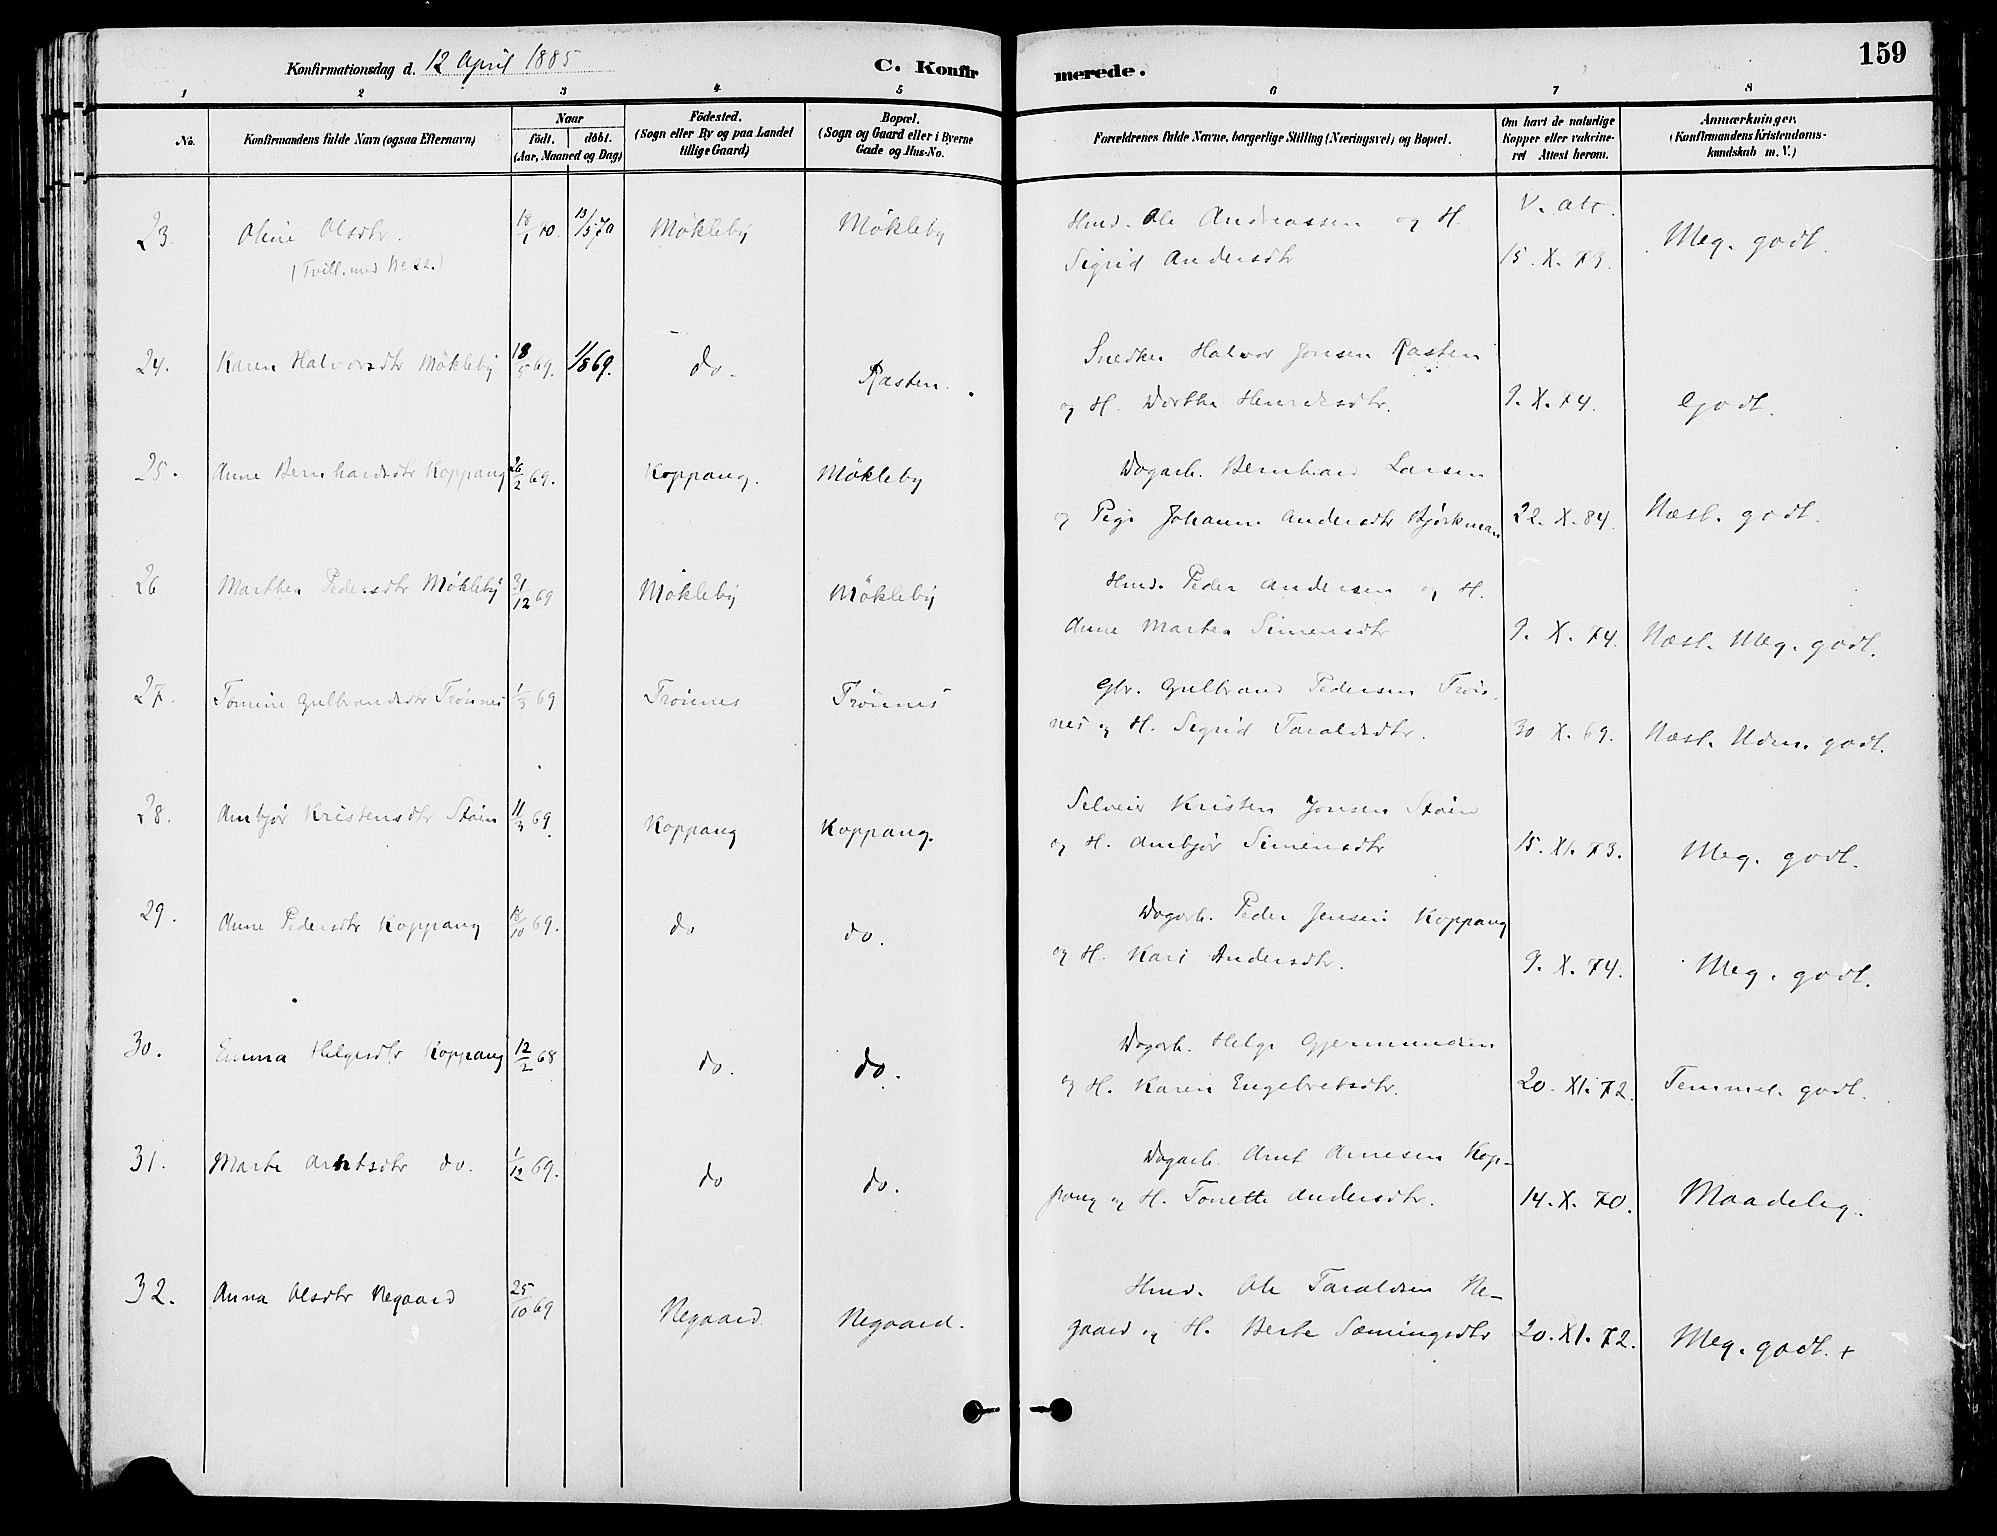 Konfirmationsdag d. 12 April 1885
C. Konfirmerede.
159
1 2 3 4 5 6 7 8
No.
Konfirmandens fulde Navn (ogsaa Efternavn)
Naar
födt. döbt.
(Aar, Maaned og Dag)
Födested.
(Sogn eller By og paa Landet
tillige Gaard)
Bopæl.
(Sogn og Gaard eller i Byerne
Gade og Hus-No.
Forældrenes fulde Navne, borgerlige Stilling (Næringsvei) og Bopæl.
Om havt de naturlige
Kopper eller vakcine-
ret Attest herom.
Anmærkninger,
(Konfirmandens Kristendoms-
kundskab m. V.)
23. Oline Olsdtr. 18/1 70. 13/5 70 Møkleby Møkleby Hmd. Ole Andreassen og H. V. att.
(Tvill. med No 22.) Sigrid Andersdtr 15. X. 73. Meg. godt.
24. Karen Halvorsdtr Møkleby 18/5 69. 1/8 69. do. Rasten. Snedker Halvor Jonsen Rasten
og H. Dorthe 9. X. 74. Godt.
25. Anne Bernhardsdtr Koppang 26/2 69. Koppang. Møkleby Dagarb. Bernhard Larsen
og Pige Johanne Andersdtr Bjørkman 22. X. 84. Næst. godt.
26 Marthea Pedersdtr Møkleby 31/12 69 Møkleby Møkleby Hmd. Peder Andersen og H.
Anne Martea Simensdtr 9. X. 74. Næst. Meg. godt.
27. Tomine Gulbrandsdtr Trønnes 1/3 69 Trønnes Trønnes Gbr. Gulbrand Pedersen Trøn-
nes og H. Sigrid Taraldsdtr. 30. X. 69. Næst. Udm. godt.
28. Ambjør Kristensdtr Støen 11/3 69. Koppang Koppang. Selveier Kristen Jonsen Støen
og H. Ambjør Simensdtr 15. XI. 73. Meg. godt.
29. Anne Pedersdtr Koppang 18/10 69. do do. Dagarb. Peder Jensen Koppang
og H. Kari Andersdtr. 9. X. 74. Meg. godt.
30. Emma Helgesdtr Koppang 12/2 68 do. do. Dagarb. Helge Gjermundsen
og H. Karen Engebretsdtr. 20. XI. 72. Temmel. godt.
31. Marte Arntsdtr do. 1/12 69. do do. Dagarb. Arnt Arnesen Kop-
pang og H. Tonette Andersdtr. 14. X. 70. Maadelig.
32. Anna Olsdtr Negaard 25/10 69 Negaard. Negaard. Hmd. Ole Taraldsen Ne-
gaard og H. Berte Sæmingsdtr 20. XI. 72. Meg. godt. +